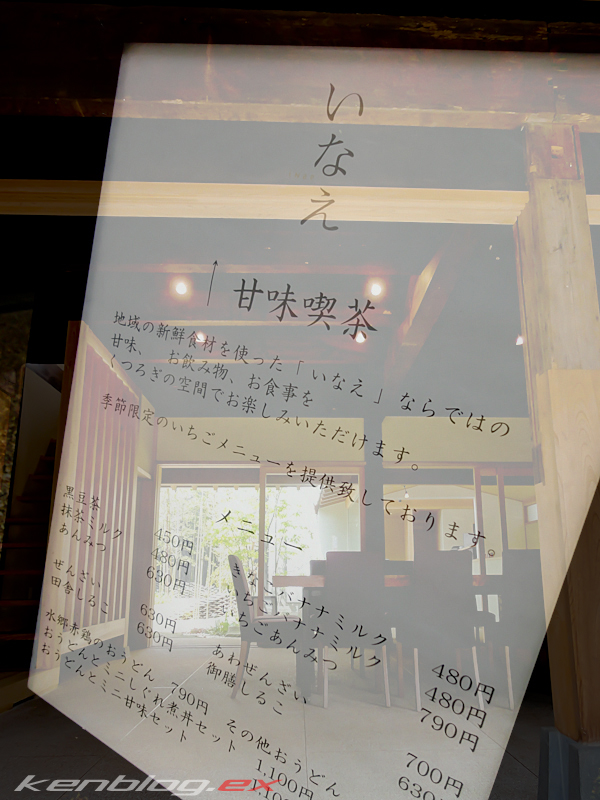 いなえ
↑
甘味喫茶
地域の新鮮食材を使った「いなえ」ならではの
甘味、お飲み物、お食事を
くつろぎの空間でお楽しみいただけます。
季節限定のいちごメニューを提供致しております。
メニュー
黒豆茶 450円
抹茶ミルク 480円
あんみつ 630円
ぜんざい 630円
田舎しるこ 630円
水郷赤鶏のおうどん 790円
おうどんとミニしぐれ煮丼セット 1.100円
おうどんとミニ甘味セット
きなこバナナミルク 480円
いちごバナナミルク 480円
いちごあんみつ 790円
あわぜんざい 700円
御膳しるこ 630
その他おうどん
kenblog.ex